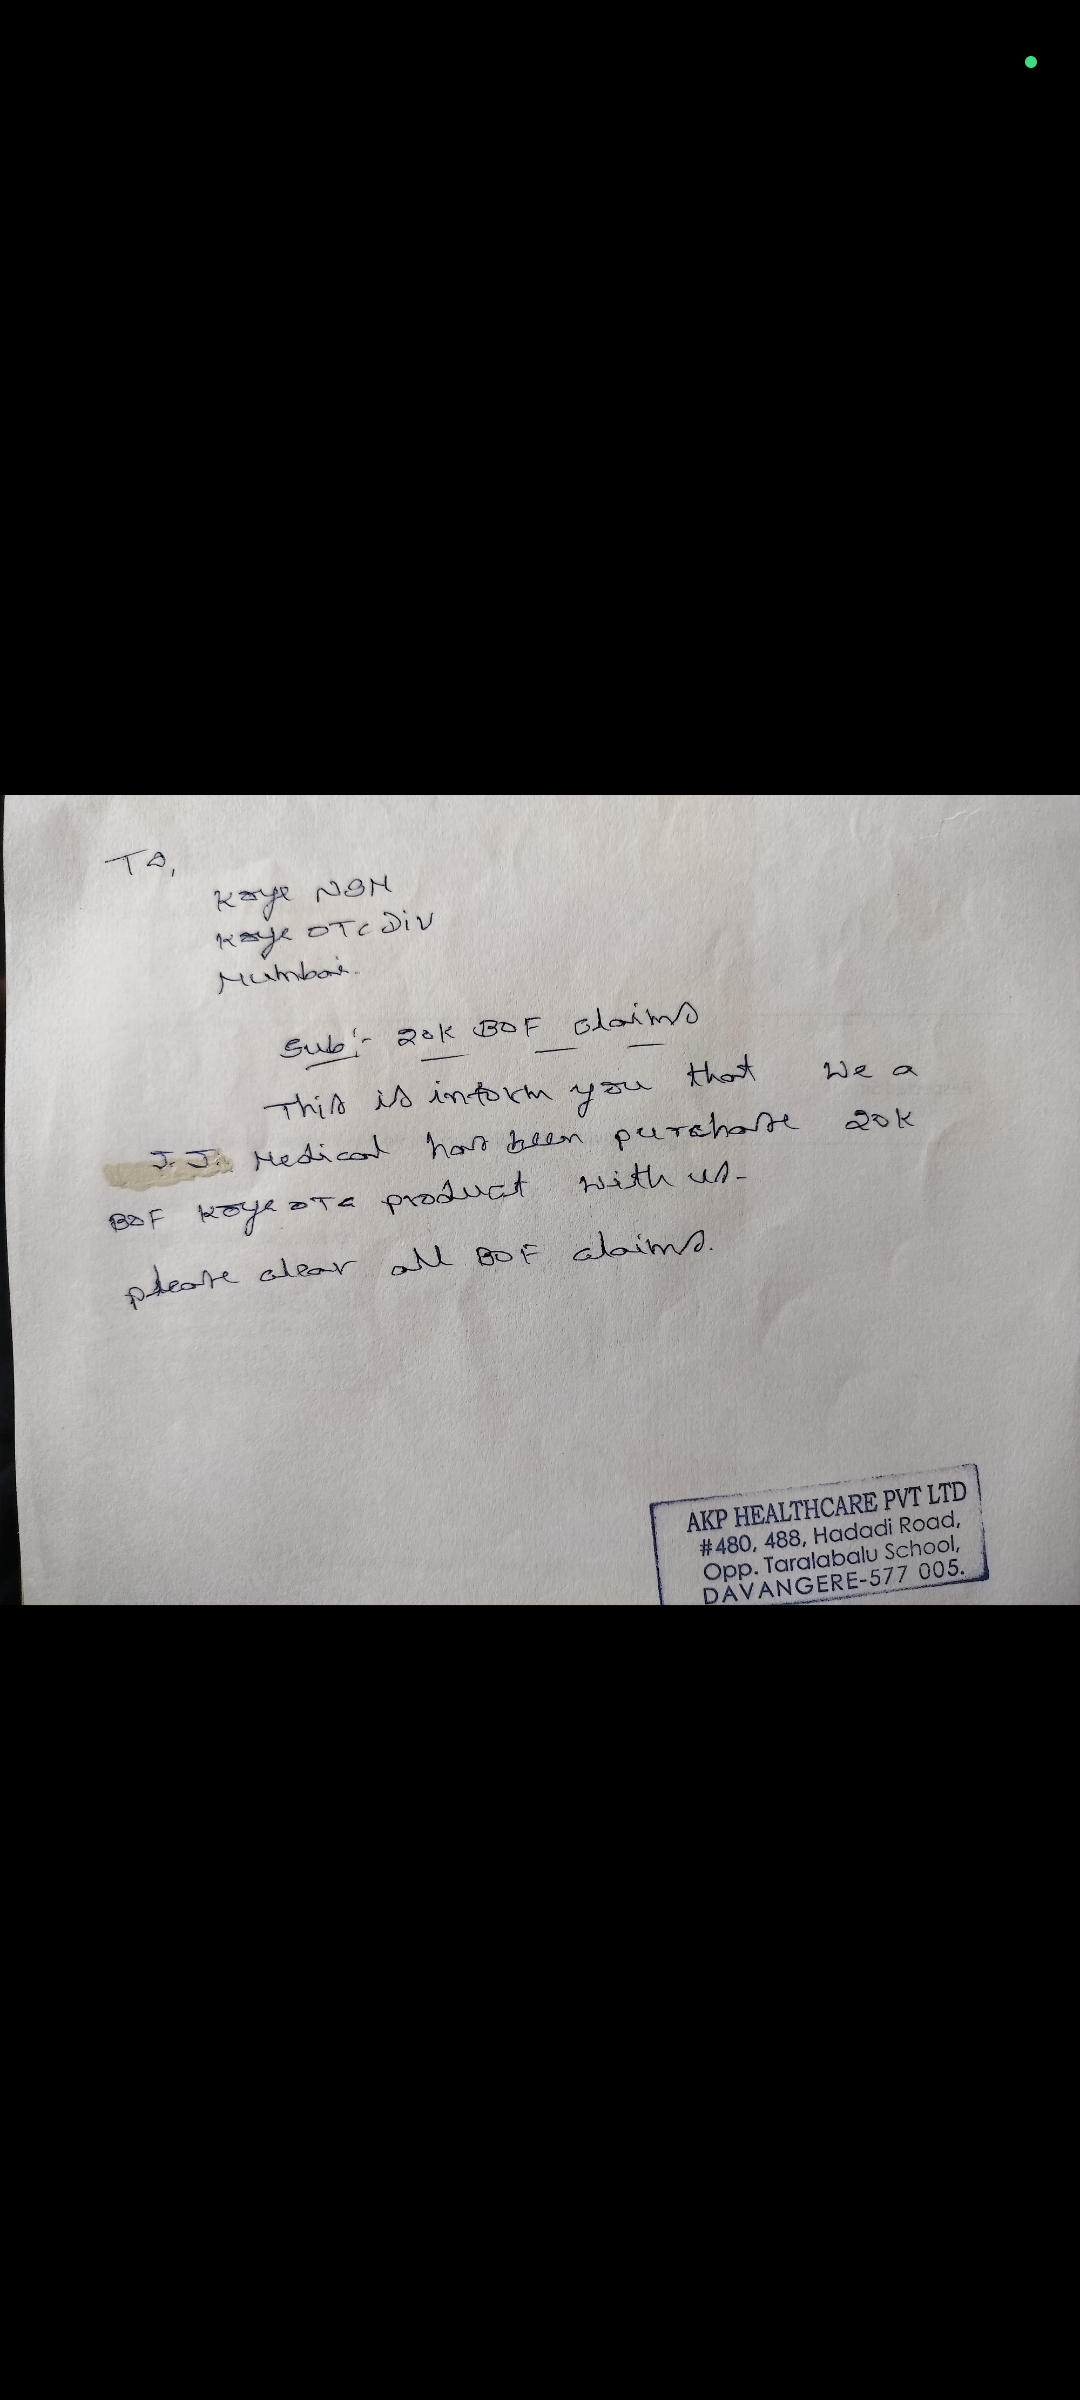 To,
Koye NSM
Koye OTC Div
Mumbai.
Sub:- 20K BOF claims
This is inform you that We a
J.J. Medical has been purchase 20K
BOF Koye OTC product with us-
please clear all BOF claims.
AKP HEALTHCARE PVT LTD
#480, 488, Hadadi Road,
Opp. Taralabalu School,
DAVANGERE-577 005.